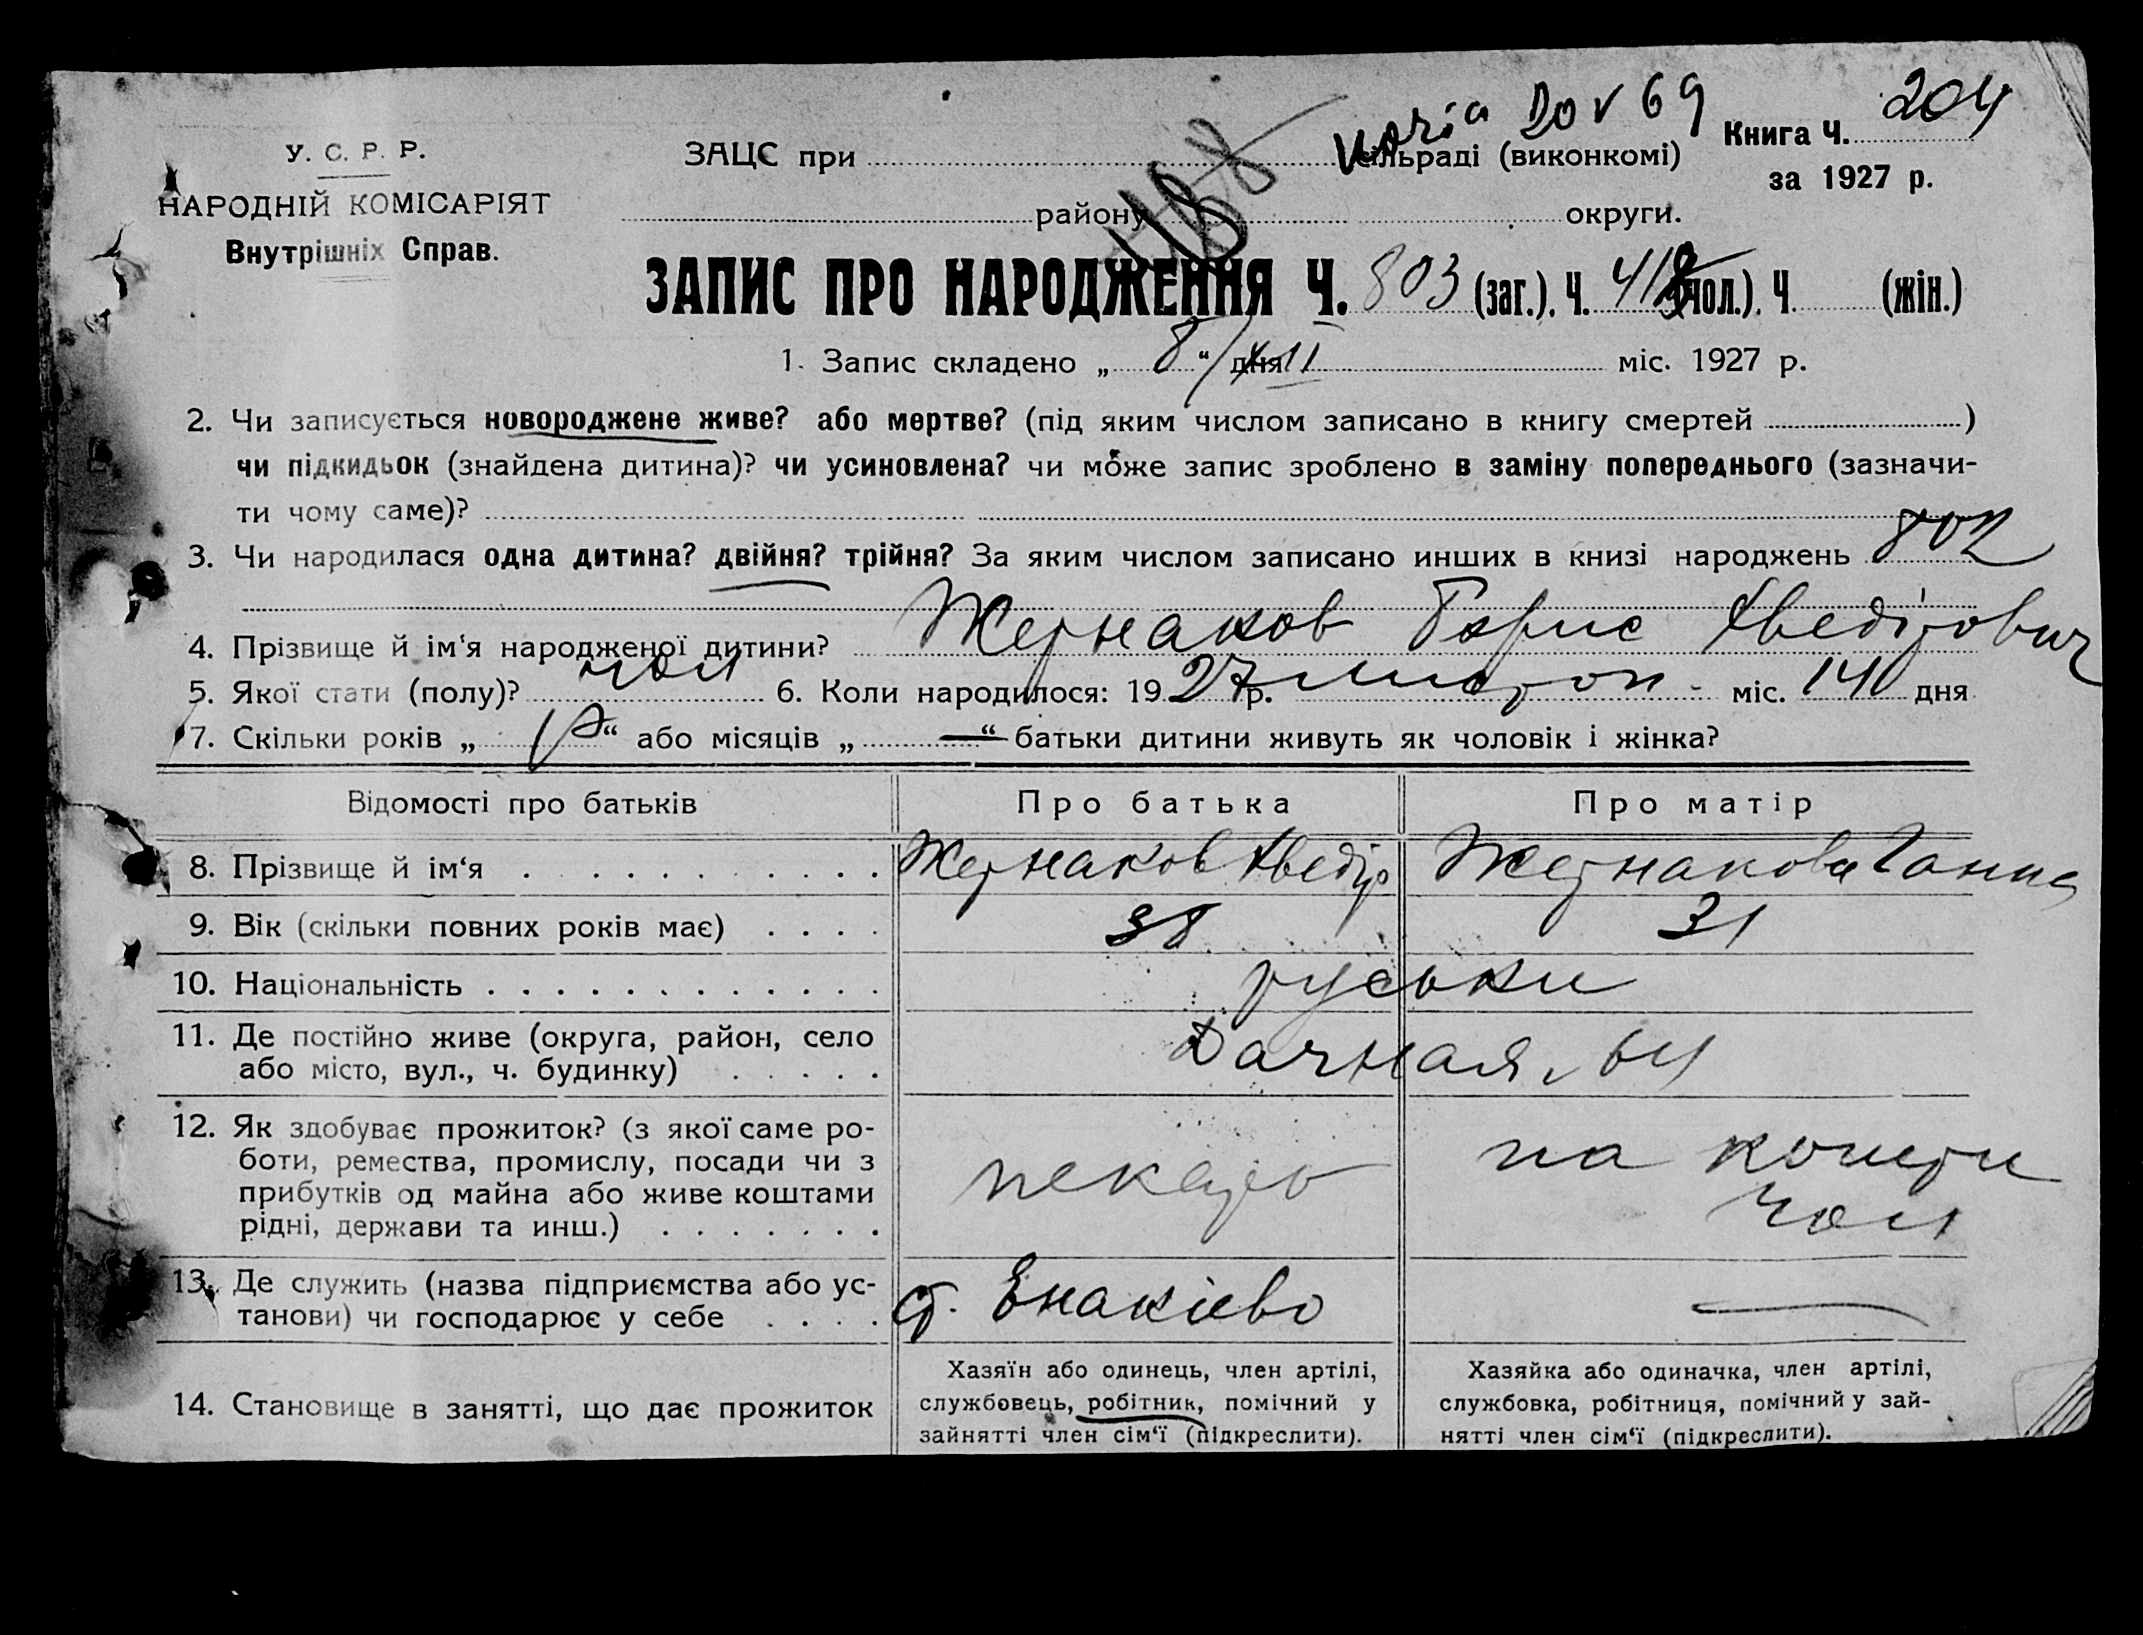 204
Книга Ч.
за 1927 р.
У. С. Р. Р.
НАРОДНІЙ КОМІСАРІЯТ
Внутрішніх Справ.
ЗАЦС при сільраді (виконкомі)
району округи.
ЗАПИС ПРО НАРОДЖЕННЯ Ч. 803 (заг.). Ч. 418 (чол.). Ч. (жін.)
1. Запис складено „ 8 “ дня XII міс. 1927 р.
2. Чи записується новороджене живе? або мертве? (під яким числом записано в книгу смертей )
чи підкидьок (знайдена дитина)? чи усиновлена? чи може запис зроблено в заміну попереднього (зазначи-
ти чому саме)?
3. Чи народилася одна дитина? двійня? трійня? За яким числом записано инших в книзі народжень 802
4. Прізвище й ім‘я народженої дитини? Жернаков Борис Хведірович
5. Якої стати (полу)? чол 6. Коли народилося: 1927 р. листоп - міс. 14 дня
7. Скільки років „ “ або місяців „ — “ батьки дитини живуть як чоловік і жінка?
Відомості про батьків Про батька Про матір
8. Прізвище й ім‘я Жернаков Хведір Жернакова Ганна
9. Вік (скільки повних років має) 38 31
10. Національність руськи
11. Де постійно живе (округа, район, село
або місто, вул., ч. будинку) Дачная, 64
12. Як здобуває прожиток? (з якої саме ро-
боти, ремества, промислу, посади чи з
прибутків од майна або живе коштами
рідні, держави та инш.) пекарь на кошти
чол
13. Де служить (назва підприємства або ус-
танови) чи господарює у себе ст. Енакієво —
14. Становище в занятті, що дає прожиток
Хазяїн або одинець, член артілі,
службовець, робітник, помічний у
зайнятті член сім‘ї (підкреслити).
Хазяйка або одиначка, член артілі,
службовка, робітниця, помічний у зай-
нятті член сім‘ї (підкреслити).